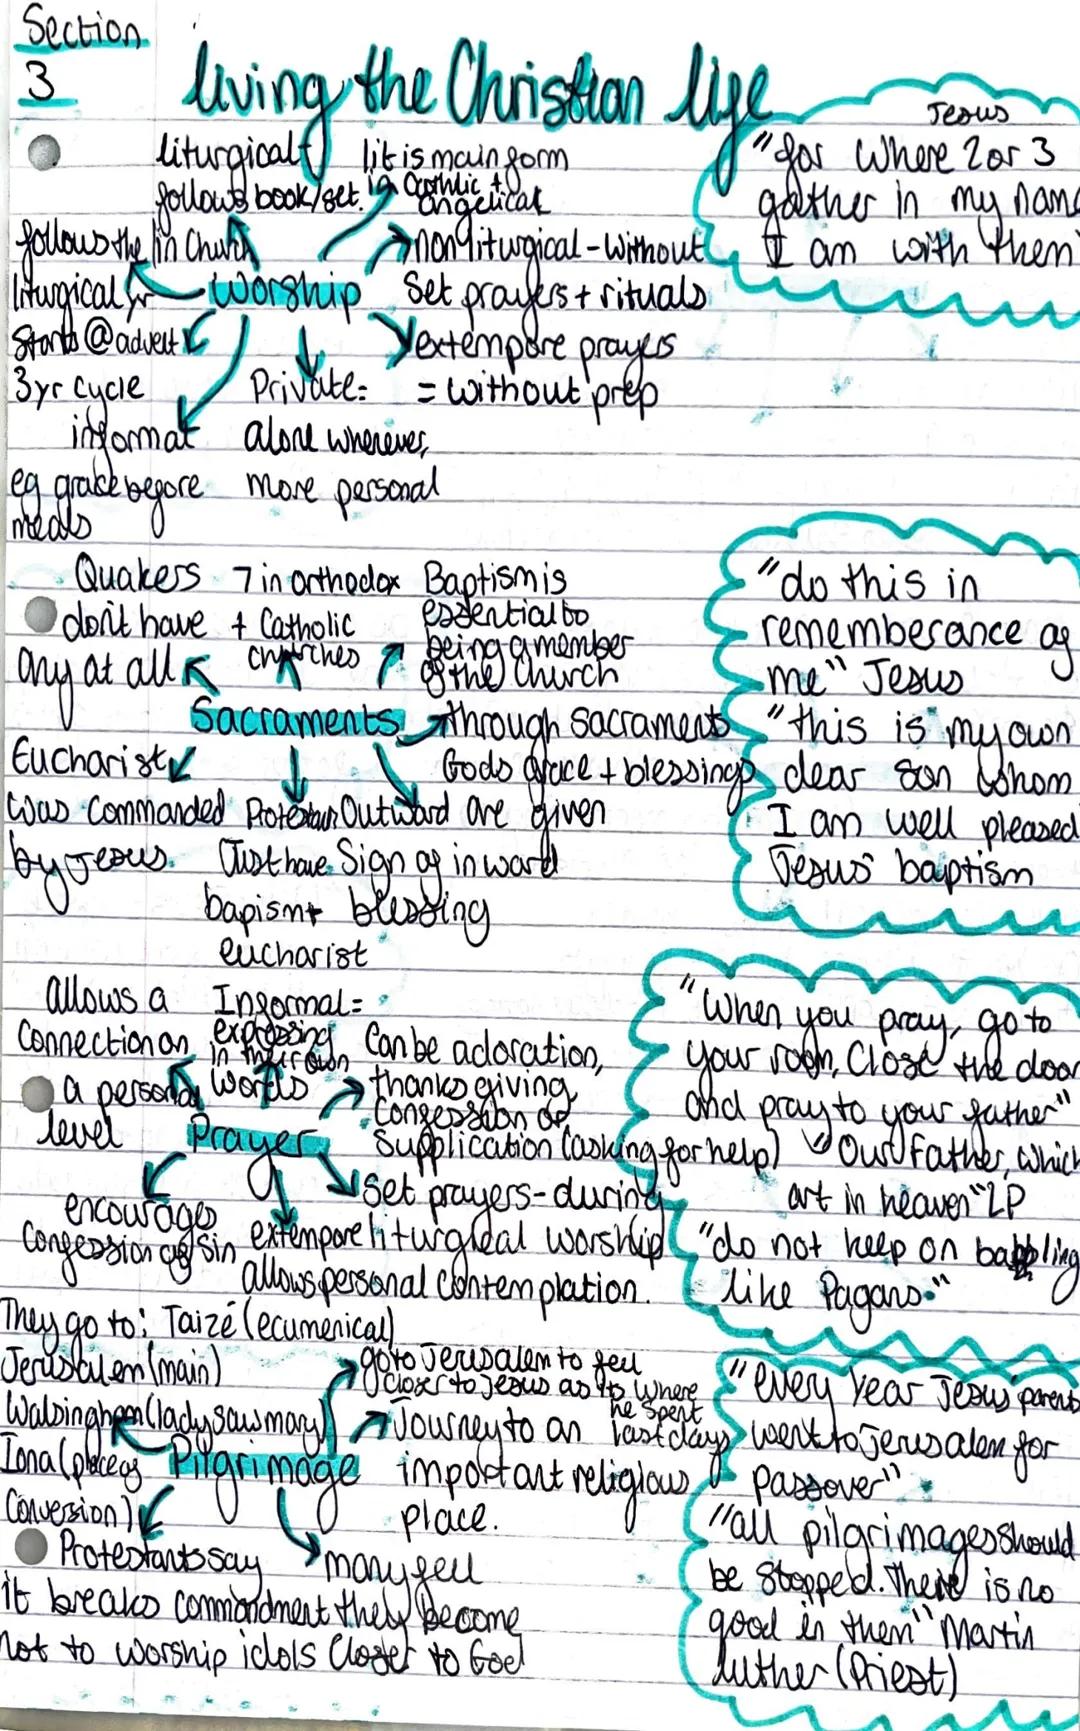 Section
3
living the Christian life
liturgical
follows book/set.
lit is main form
in Catholic +
angelical
Jesus
"for where 2 or 3
gather in my name
I am with them"
follows the
liturgical yr
starts @ advent
3yr cycle
in Church
Worship
nonliturgical - without
set prayers + rituals
extempore prayers
= without prep
Private =
alone wherever,
more personal
informal
eg grace before
meals
Quakers
don't have
any at all
7 in orthodox
+ Catholic
churches
Baptism is
essential to
being a member
of the Church
Sacraments
through sacraments
Gods grace + blessings
are given
Eucharist
was commanded
by Jesus.
Protestants
Just have
bapism +
eucharist
Outward
Sign of inward
blessing
"do this in
rememberance of
me" Jesus
"this is my own
dear son whom
I am well pleased
Jesus' baptism
allows a
connection on
a personal
level
Informal =
expressing
in their own
words
Can be adoration,
thanksgiving,
confession or
supplication (asking for help)
Prayer
set prayers - during
liturgical worship
encourages
confession of sin
extempore
allows personal contemplation.
"When you pray, go to
your room, close the door
and pray to your father"
"Our Father, which
art in heaven" LP
"do not keep on babbling
like Pagans."
They go to: Taizé (ecumenical)
Jerusalem (main)
Walsingham (lady saw mary)
Iona (place of
conversion)
Pilgrimage
go to Jerusalem to feel
closer to Jesus as its where
he spent
last days
Journey to an
important religious
place.
Protestants say
it breaks commandment
not to worship idols
many feel
they become
closer to God
"every year Jesus' parents
went to Jerusalem for
passover"
"all pilgrimages should
be stopped. There is no
good in them" Martin
Luther (Priest)